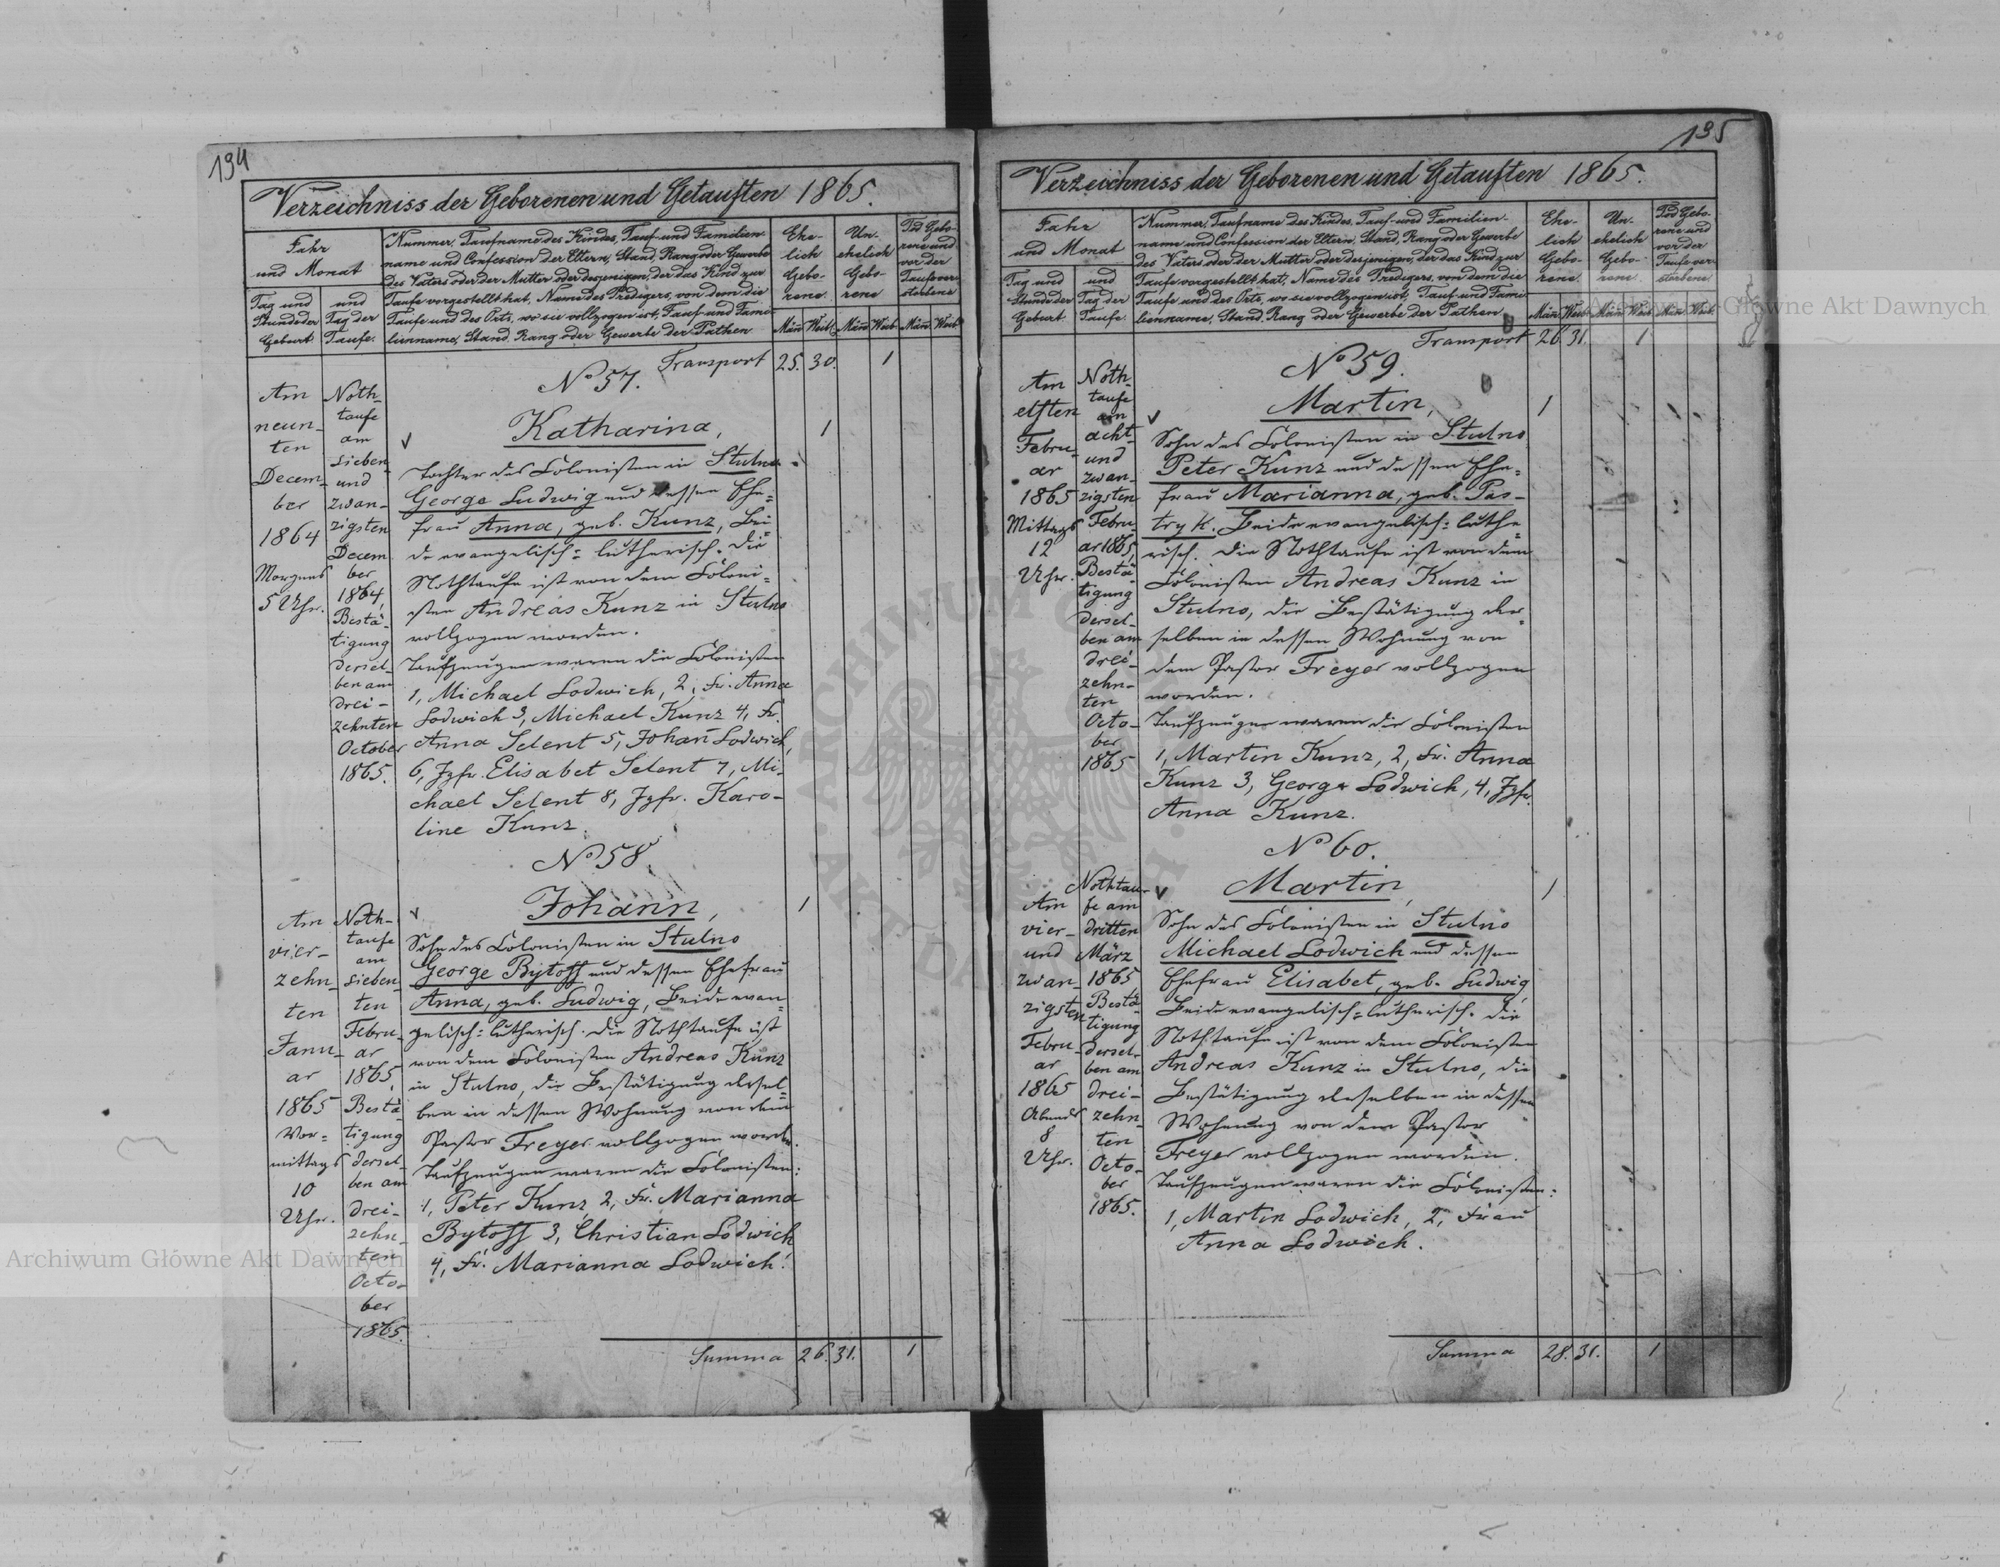 194
Verzeichniss der Geborenen und Getauften 1865.
Jahr
und Monat
Tag und
Stunde der
Geburt
und
Tag der
Taufe.
Nummer, Taufname des Kindes, Tauf- und Familien-
name und Confession der Eltern, Stand, Rang oder Gewerbe
des Vaters oder der Mutter oder desjenigen, der das Kind zur
Taufe vorgestellt hat, Name des Predigers, von dem die
Taufe und des Orts, wo sie vollzogen ist, Tauf- und Fami-
lienname, Stand, Rang oder Gewerbe der Pathen
Ehe-
lich
Gebo-
rene.
Un-
ehelich
Gebo-
rene
Tod Gebo-
rene und
vor der
Taufe ver-
storbene
Män Weib Män Weib Män Weib
Transport 25. 30. 1
Am
neun-
ten
Decem-
ber
1864
Morgens
5 Uhr.
Noth-
taufe
am
sieben
und
zwan-
zigsten
Decem
ber
1864,
Bestä-
tigung
dersel-
ben am
drei-
zehnten
October
1865.
No 57.
Katharina, 1
Tochter des Colonisten in Stulno
George Ludwig und dessen Ehe-
frau Anna, geb. Kunz, Bei
de evangelisch-lutherisch. Die
Nothtaufe ist von dem Coloni-
sten Andreas Kunz in Stulno
vollzogen worden.
Taufzeugen waren die Colonisten
1, Michael Lodwich, 2, Fr. Anna
Lodwich 3, Michael Kunz 4, Fr.
Anna Selent 5, Johan Lodwich,
6, Jgfr. Elisabet Selent 7, Mi-
chael Selent 8, Jgfr. Karo-
line Kunz.
Am
vier-
zehn-
ten
Janu-
ar
1865
Vor-
mittags
10
Uhr.
Noth-
taufe
am
sieben-
ten
Febru-
ar
1865,
Bestä
tigung
dersel-
ben am
drei-
zehn-
ten
Octo-
ber
1865.
No 58.
Johann, 1
Sohn des Colonisten in Stulno
George Bytoff und dessen Ehefrau
Anna, geb. Ludwig, Beide evan-
gelisch-lutherisch. Die Nothtaufe ist
von dem Colonisten Andreas Kunz
in Stulno, die Bestätigung dersel-
ben in dessen Wohnung von dem
Pastor Freyer vollzogen worden.
Taufzeugen waren die Colonisten:
1, Peter Kunz, 2, Fr. Marianna
Bytoff 3, Christian Lodwich,
4, Fr. Marianna Lodwich.
Summa 26. 31. 1
135
Verzeichniss der Geborenen und Getauften 1865.
Jahr
und Monat
Tag und
Stunde der
Geburt
und
Tag der
Taufe
Nummer, Taufname des Kindes, Tauf- und Familien-
name und Confession der Eltern, Stand, Rang oder Gewerbe
des Vaters oder der Mutter oder desjenigen, der das Kind zur
Taufe vorgestellt hat, Name des Predigers, von dem die
Taufe und des Orts, wo sie vollzogen ist, Tauf- und Fami-
lienname, Stand, Rang oder Gewerbe der Pathen.
Ehe-
lich
Gebo-
rene.
Un-
ehelich
Gebo-
rene.
Tod Gebo-
rene und
vor der
Taufe ver-
storbene
Män Weib Män Weib Män Weib
Transport 26. 31. 1
Am
elften
Febru-
ar
1865
Mittags
12
Uhr.
Noth-
taufe
am
acht-
und
zwan-
zigsten
Febru-
ar 1865,
Bestä-
tigung
dersel-
ben am
drei-
zehn-
ten
Octo-
ber
1865
No 59.
Martin, 1
Sohn des Colonisten in Stulno
Peter Kunz und dessen Ehe-
frau Marianna, geb. Pas-
tryk. Beide evangelisch-luthe-
risch. Die Nothtaufe ist von dem
Colonisten Andreas Kunz in
Stulno, die Bestätigung der-
selben in dessen Wohnung von
dem Pastor Freyer vollzogen
worden.
Taufzeugen waren die Colonisten
1, Martin Kunz, 2, Fr. Anna
Kunz 3, George Lodwich, 4, Jgfr.
Anna Kunz.
Am
vier-
und
zwan-
zigsten
Febru-
ar
1865
Abends
8
Uhr.
Nothtau-
fe am
dritten
März
1865
Bestä-
tigung
dersel-
ben am
drei-
zehn-
ten
Octo-
ber
1865.
No 60.
Martin, 1
Sohn des Colonisten in Stulno
Michael Lodwich und dessen
Ehefrau Elisabet, geb. Ludwig,
Beide evangelisch-lutherisch. Die
Nothtaufe ist von dem Colonisten
Andreas Kunz in Stulno, die
Bestätigung derselben in dessen
Wohnung von dem Pastor
Freyer vollzogen worden.
Taufzeugen waren die Colonisten:
1, Martin Lodwich, 2, Frau
Anna Lodwich.
Summa 28. 31. 1
Archiwum Główne Akt Dawnych
Archiwum Główne Akt Dawnych